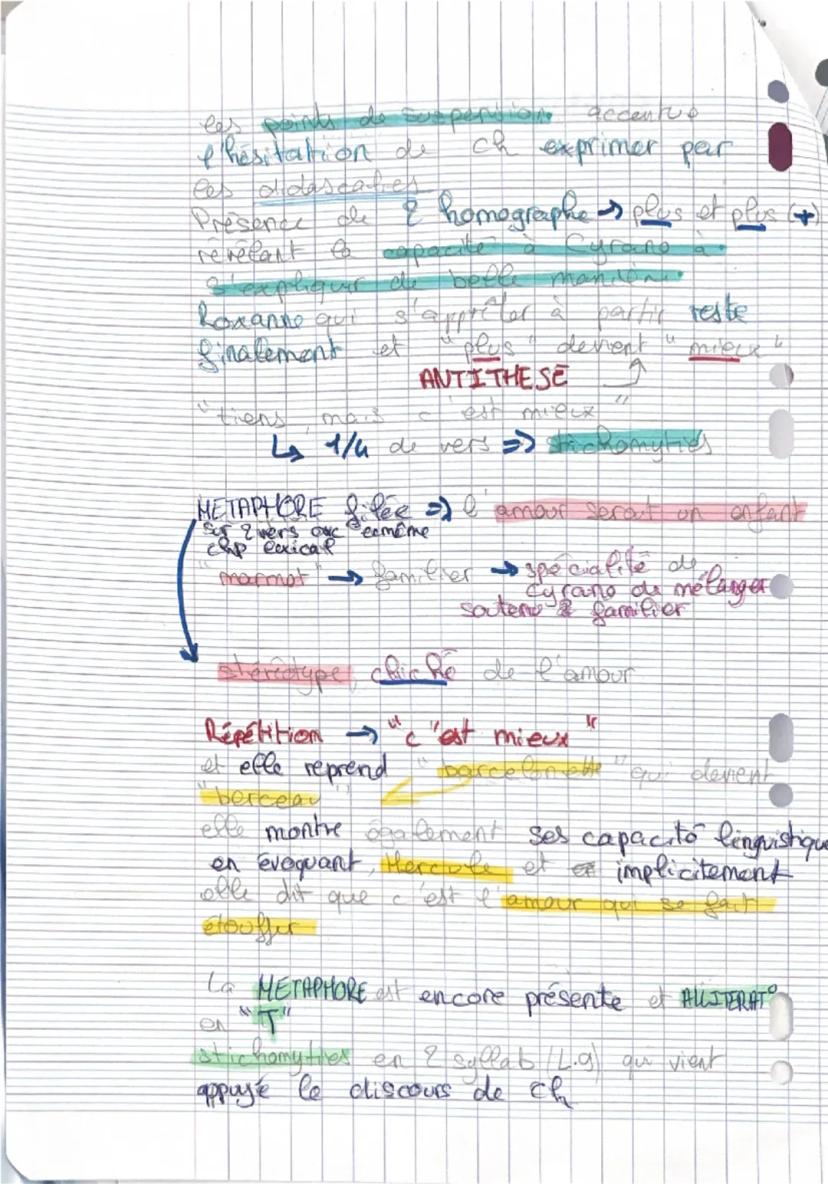 les points de suspension accentue
l'hésitation de ch exprimer par
les didascalies
Présence de 2 homographe → plus et plus (+)
révélant la capacité à Cyrano à
s'expliquer de belle manière.
Roxanne qui s'apprêter à partir reste
finalement et "plus" devient "mieux"
ANTITHESE
"tiens, mais c'est mieux"
↳ 1/4 de vers => stichomyties
METAPHORE filée => l'amour serait un enfant
sur 2 vers avc le même
chp lexical
"marmot" → familier → spécialité de
Cyrano de mélanger
soutenu & familier
stéréotype, cliché de l'amour
Répétition → "c'est mieux"
et elle reprend "barcelonette" qui devient
"berceau"
elle montre également ses capacité linguistique
en évoquant, Hercule et implicitement
elle dit que c'est l'amour qui se fait
étouffer
La METAPHORE est encore présente et ALLITERAT°
en "T"
stichomyties en 2 syllab (L.9) qui vient
appuyé le discours de ch